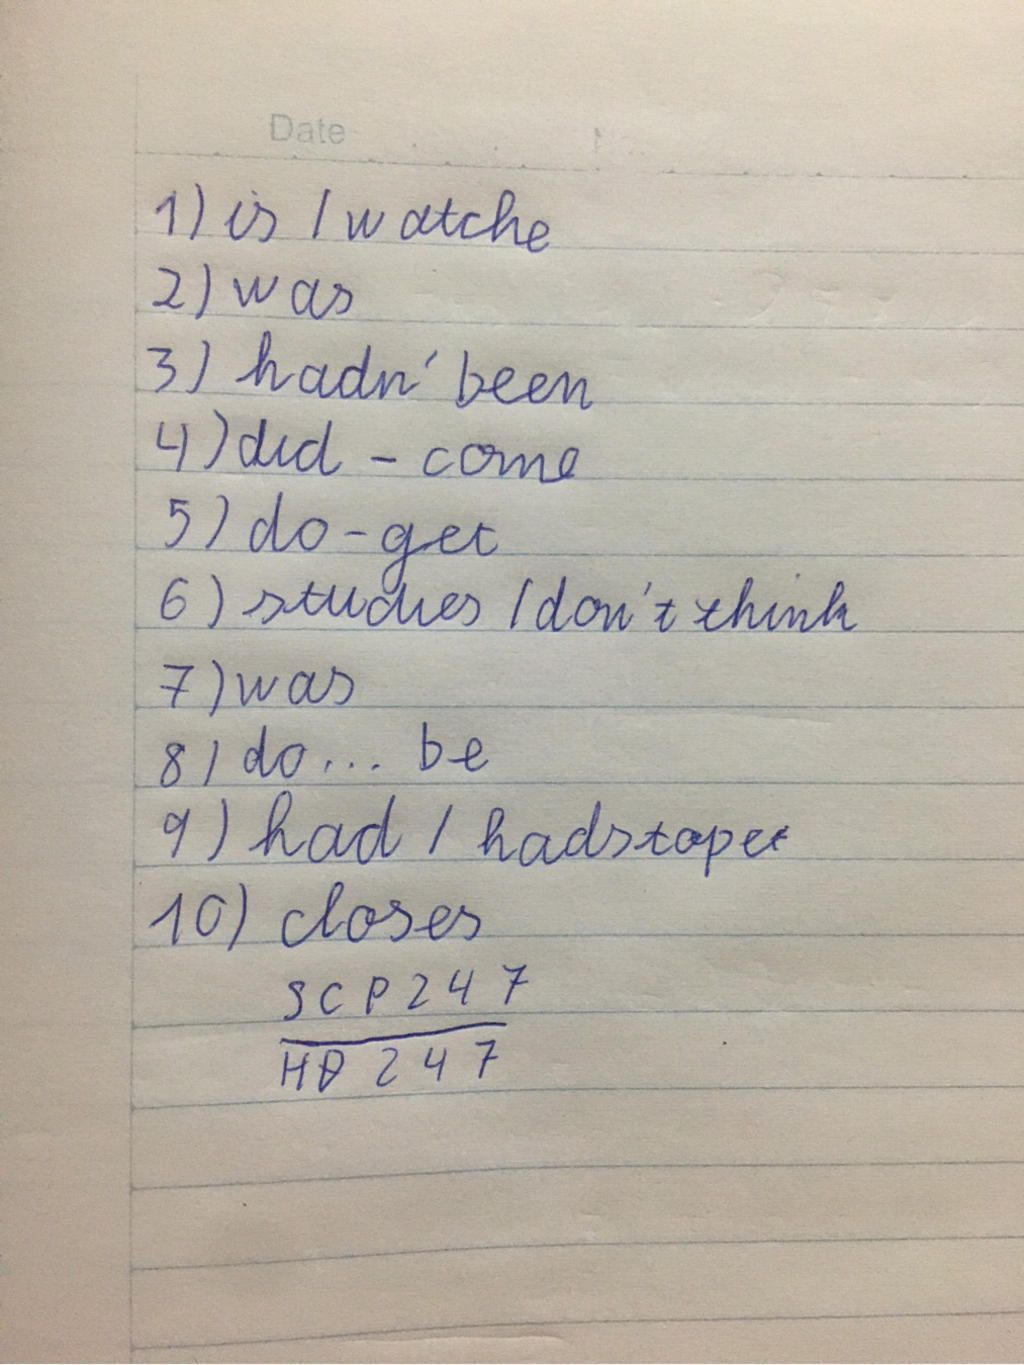 Date
1) is / watche
2) was
3) hadn' been
4) did - come
5) do - get
6) studies / don't think
7) was
8) do... be
9) had / hadstopet
10) closes
SCP247
HD 247